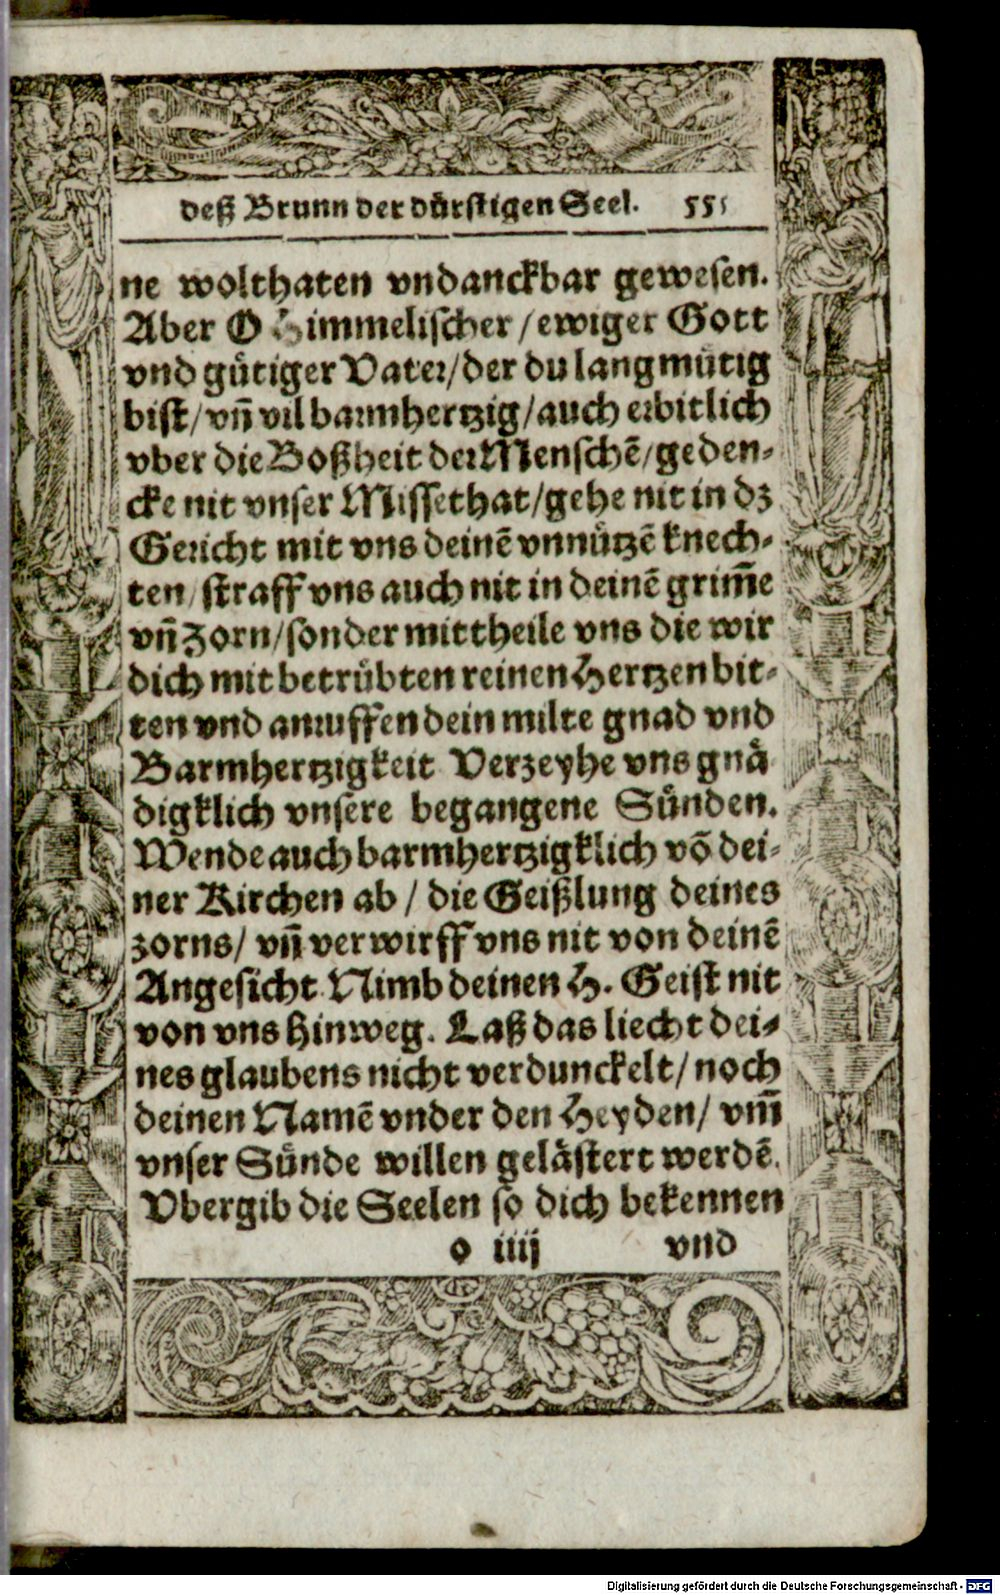 deß Brunn der dürstigen Seel. 55
ne wolthaten vndanckbar gewesen.
Aber O Himmelischer / ewiger Gott
vnd gütiger Vater / der du langmütig
bist / vñ vil barmhertzig / auch erbitlich
vber die Boßheit der Menschẽ / geden⸗
cke nit vnser Missethat / gehe nit in dz
Gericht mit vns deinẽ vnnützẽ knech⸗
ten / straff vns auch nit in deinẽ grim̃e
vñ Zorn / sonder mittheile vns die wir
dich mit betrübten reinen Hertzen bit⸗
ten vnd anruffen dein milte gnad vnd
Barmhertzigkeit Verzeyhe vns gnä
digklich vnsere begangene Sünden.
Wende auch barmhertzigklich võ dei⸗
ner Kirchen ab / die Geißlung deines
zorns / vñ verwirff vns nit von deinẽ
Angesicht. Nimb deinen H. Geist nit
von vns hinweg. Laß das liecht dei⸗
nes glaubens nicht verdunckelt / noch
deinen Namẽ vnder den Heyden / vm̃
vnser Sünde willen gelästert werdẽ.
Vbergib die Seelen so dich bekennen
o iiij vnd
Digitalisierung gefördert durch die Deutsche Forschungsgemeinschaft - DFG